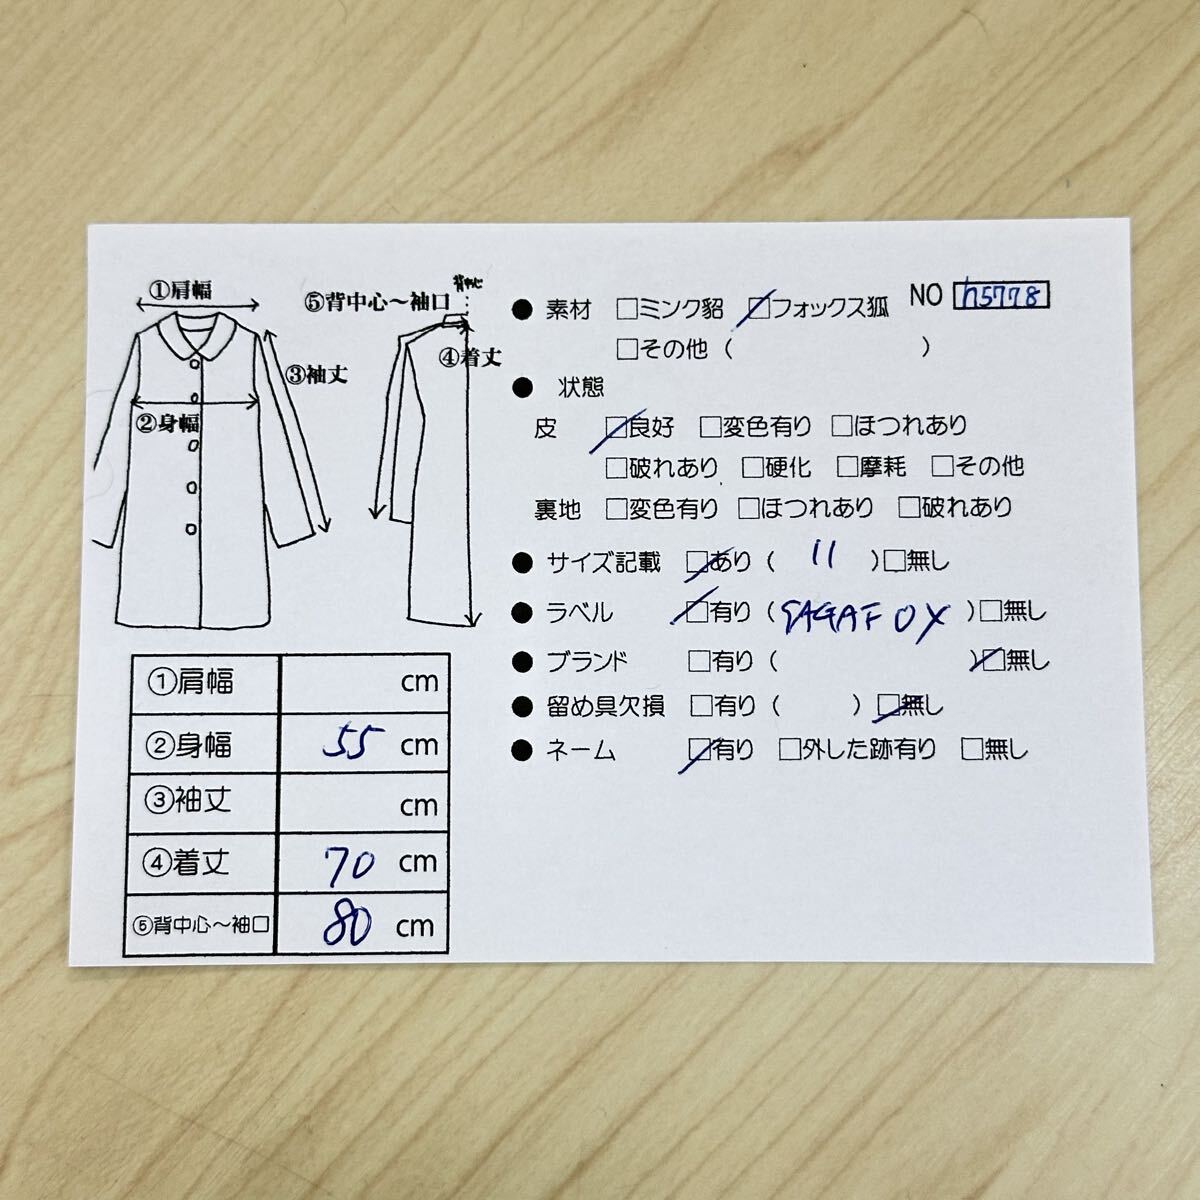 ①肩幅
⑤背中心～袖口
背中心
④着丈
③袖丈
②身幅
①肩幅 cm
②身幅 55 cm
③袖丈 cm
④着丈 70 cm
⑤背中心～袖口 80 cm
NO h5778
● 素材 □ミンク貂 ☑フォックス狐
□その他 ( )
● 状態
皮 ☑良好 □変色有り □ほつれあり
□破れあり □硬化 □摩耗 □その他
裏地 □変色有り □ほつれあり □破れあり
● サイズ記載 ☑あり ( 11 ) □無し
● ラベル ☑有り ( SAGAFOX ) □無し
● ブランド □有り ( ) ☑無し
● 留め具欠損 □有り ( ) ☑無し
● ネーム ☑有り □外した跡有り □無し